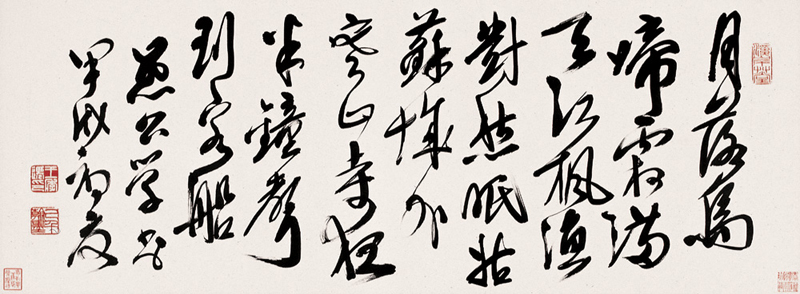 月落烏
啼霜滿
天江楓漁
對愁眠姑
蘇城外
寒山寺夜
半鐘聲
到客船
愚公学书
甲戌初夏